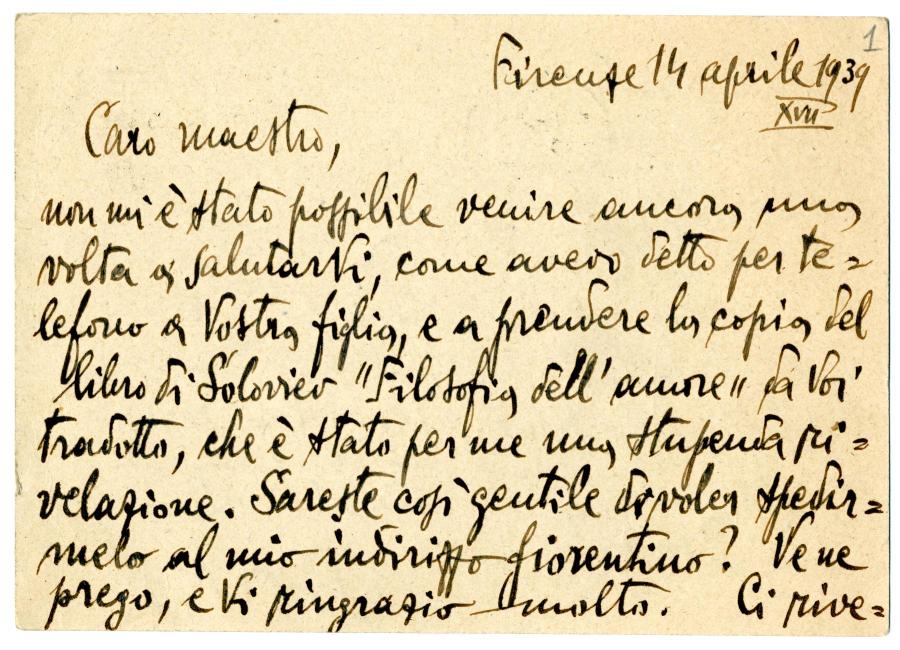 1
Firenze 14 aprile 1939
XVII
Caro maestro,
non mi è stato possibile venire ancora una
volta a salutarVi, come avevo detto per te=
lefono a Vostra figlia, e a prendere la copia del
libro di Soloviev "Filosofia dell'amore" da Voi
tradotto, che è stato per me una stupenda ri=
velazione. Sareste così gentile di voler spedir=
melo al mio indirizzo fiorentino? Ve ne
prego, e Vi ringrazio molto. Ci rive=